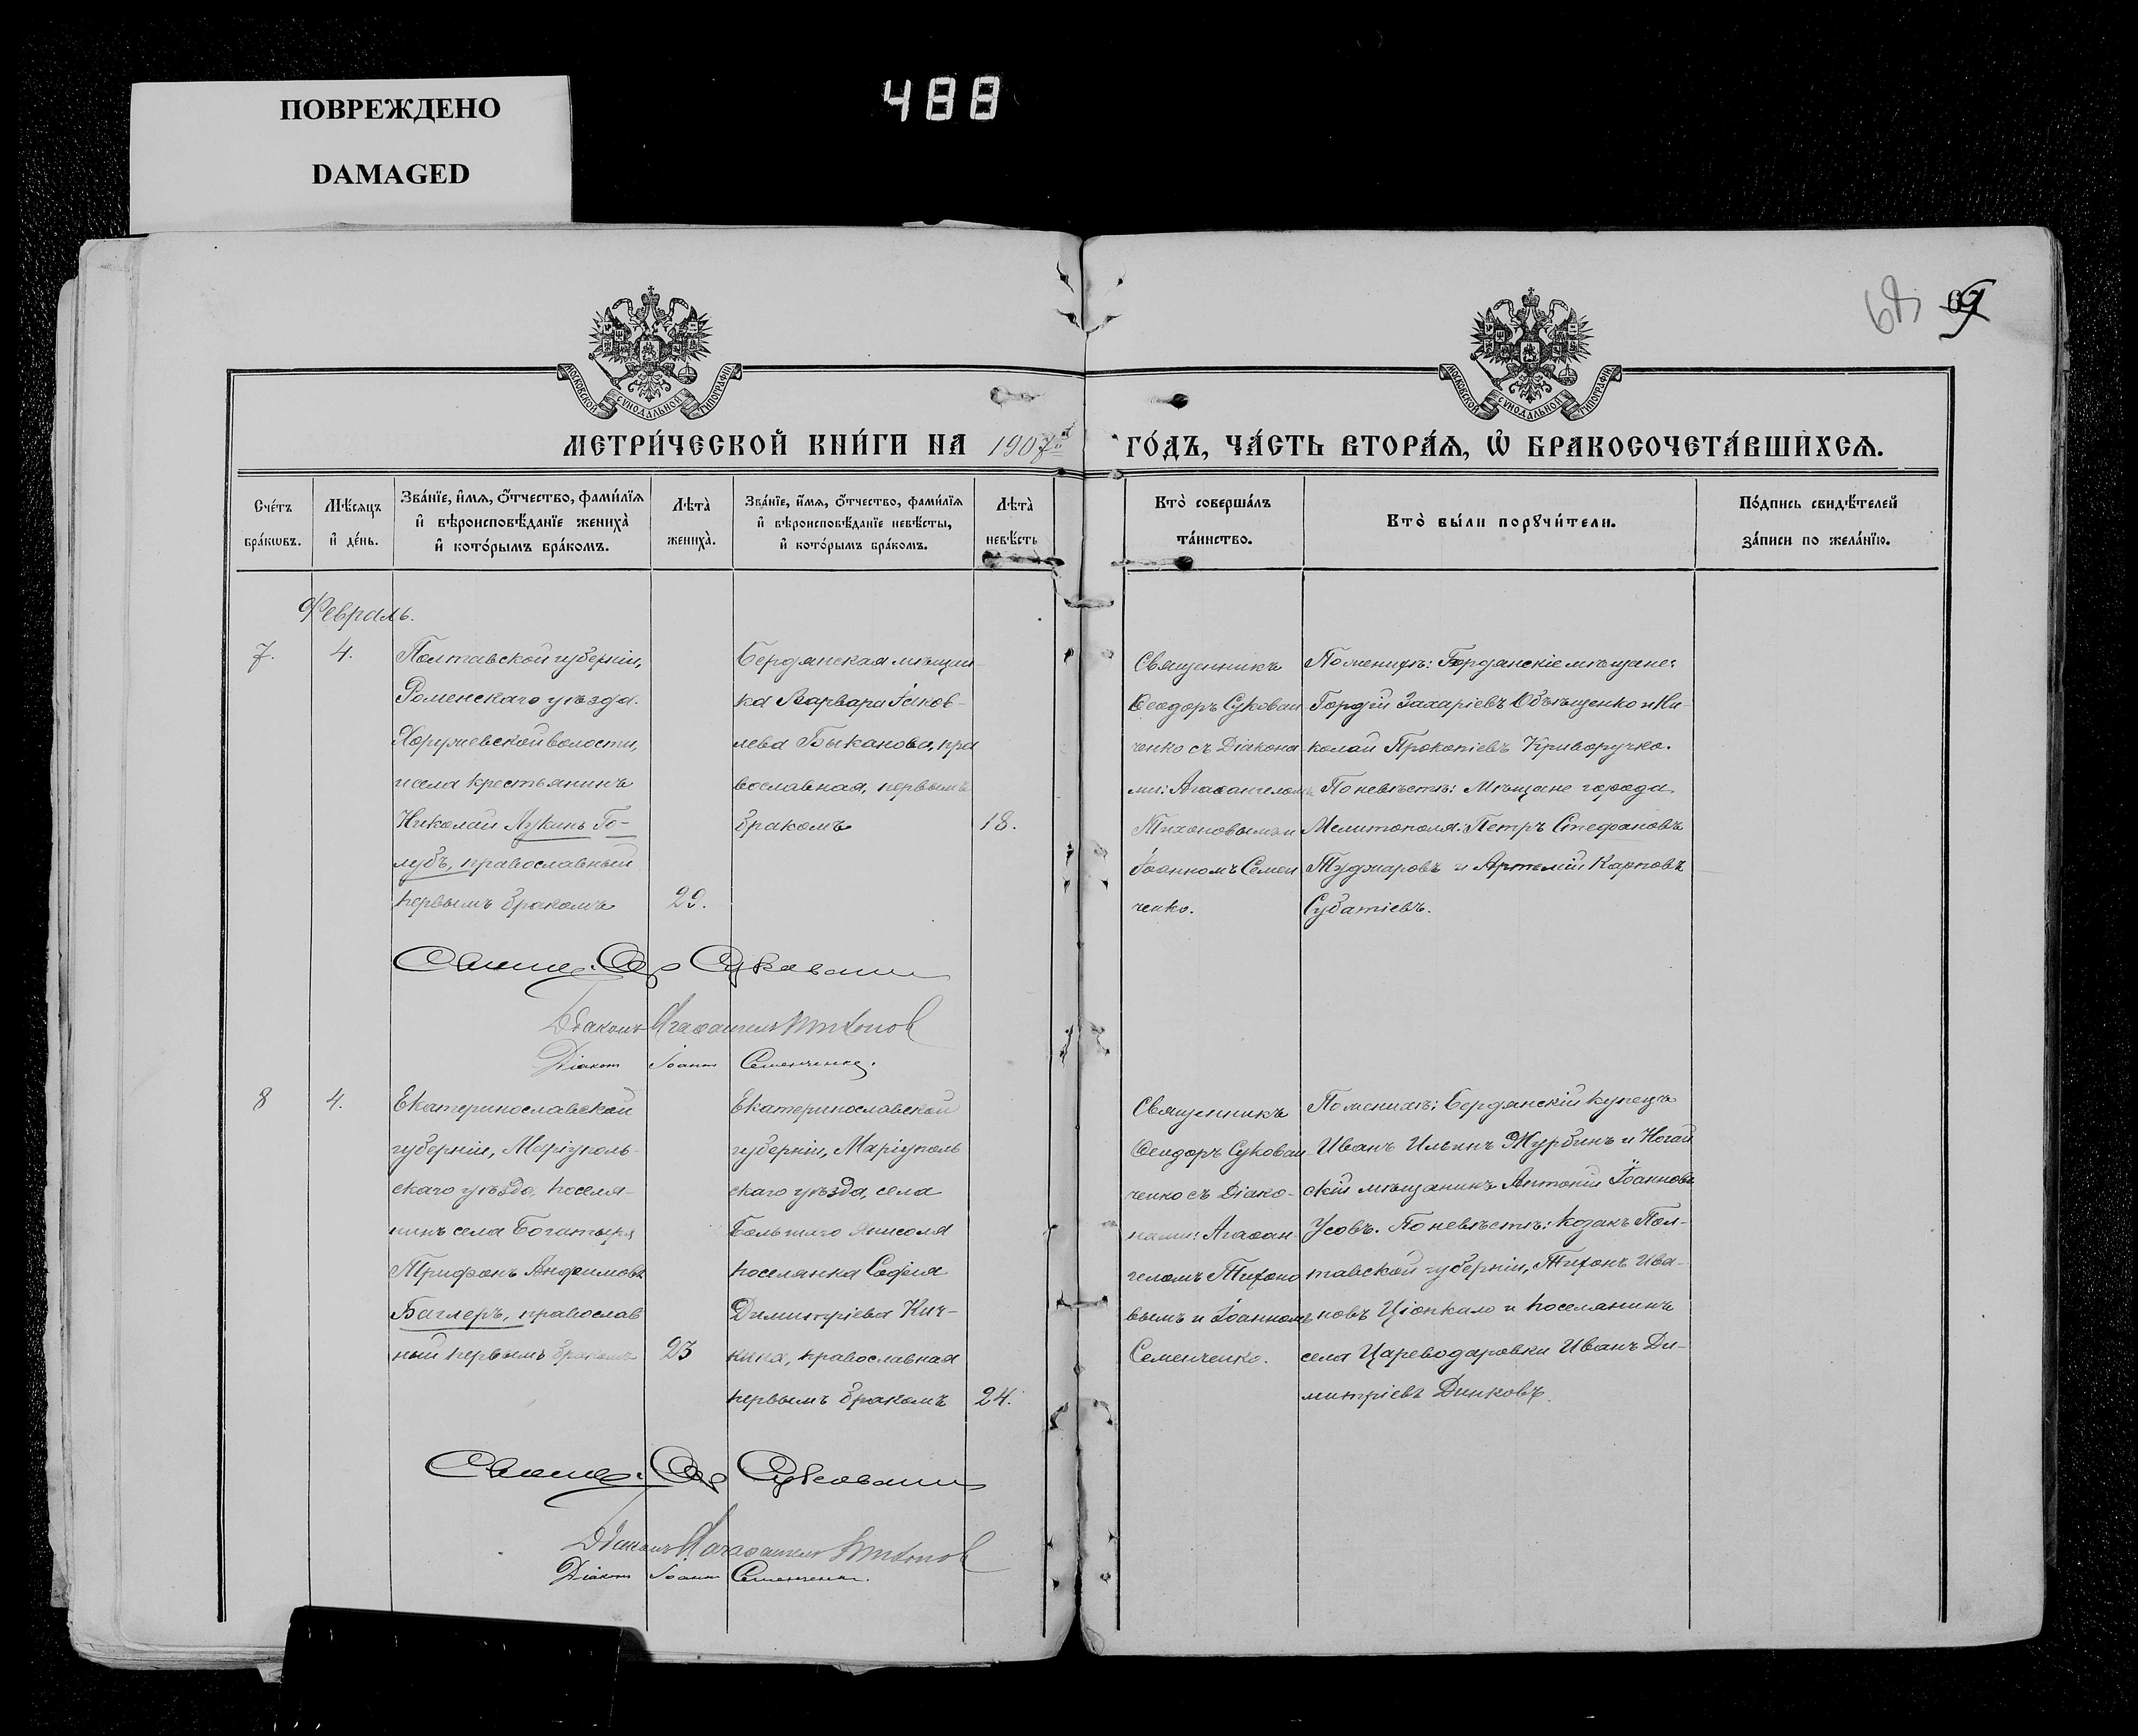 ПОВРЕЖДЕНО
DAMAGED
488
68
МОСКОВСКОЙ СУНОДАЛЬНОЙ ТИПОГРАФІИ
МОСКОВСКОЙ СУНОДАЛЬНОЙ ТИПОГРАФІИ
МЕТРИ́ЧЕСКОЙ КНИ́ГИ НА 1907й
ГО́ДЪ, ЧА́СТЬ ВТОРА́Ѧ, Ѡ БРАКОСОЧЕТА́ВШИХСѦ.
Сче́тъ
бра́кѡвъ.
Мѣ́сяцъ
и де́нь.
Зва́нїе, и́мѧ, о́тчество, фами́лїѧ
и вѣроисповѣ́данїе жениха̀
и кото́рымъ бра́комъ.
Лѣта̀
жениха̀.
Зва́нїе, и́мѧ, о́тчество, фами́лїѧ
и вѣроисповѣ́данїе невѣ́сты,
и кото́рымъ бра́комъ.
Лѣта̀
невѣ́сты
Кто̀ соверша́лъ
та́инство.
Кто̀ бы́ли порꙋчи́тели.
По́дпись свидѣ́телей
за́писи по жела́нїю.
Февраль.
7.
4.
Полтавской губерніи,
Роменскаго уѣзда.
волости,
и села крестьянинъ
Николай Лукинъ Го-
лубъ, православный
первымъ бракомъ
29.
Бердянская мѣщан-
ка Варвара Іаков-
лева Быканова, пра
вославная, первымъ
бракомъ
18.
Священникъ
Ѳеодоръ Сукован
ченко съ Діакона
ми: Агаѳангеломъ
Тихоновымъ и
Іоанномъ Семен
ченко.
По женихѣ: Бердянскіе мѣщане:
Гордій Захаріевъ Объѣщенко и Ни-
колай Прокопіевъ Криворучко.
По невѣстѣ: Мѣщане города
Мелитополя: Петръ Стефановъ
Туджаровъ и Артемій Карповъ
Субатіевъ.
Діаконъ Агаѳангелъ Тихонов
Діаконъ Іоаннъ Семенченко.
8
4.
Екатеринославской
губерніи, Маріуполь-
скаго уѣзда, поселя-
нинъ села Богатыря
Трифонъ Анфимовъ
Баглеръ, православ
ный первымъ бракомъ
23
Екатеринославской
губерніи, Маріуполь
скаго уѣзда, села
Большаго Янисоля
поселянка Софія
Димитріева Кич-
кина, православная
первымъ бракомъ
24.
Священникъ
Ѳеодоръ Сукован-
ченко съ Діако-
нами: Агаѳан-
геломъ Тихоно
вымъ и Іоанномъ
Семенченко.
По женихѣ: Бердянскій купецъ
Иванъ Ильинъ Журбинъ и Ногай
скій мѣщанинъ Антоній Іоанновъ
Усовъ. По невѣстѣ: козакъ Пол-
тавской губерніи, Тихонъ Ива-
новъ Цюпкало и поселянинъ
села Цареводаровки Иванъ Ди-
митріевъ Динковъ.
Діаконъ Агаѳангелъ Тихонов
Діаконъ Іоаннъ Семенченко.